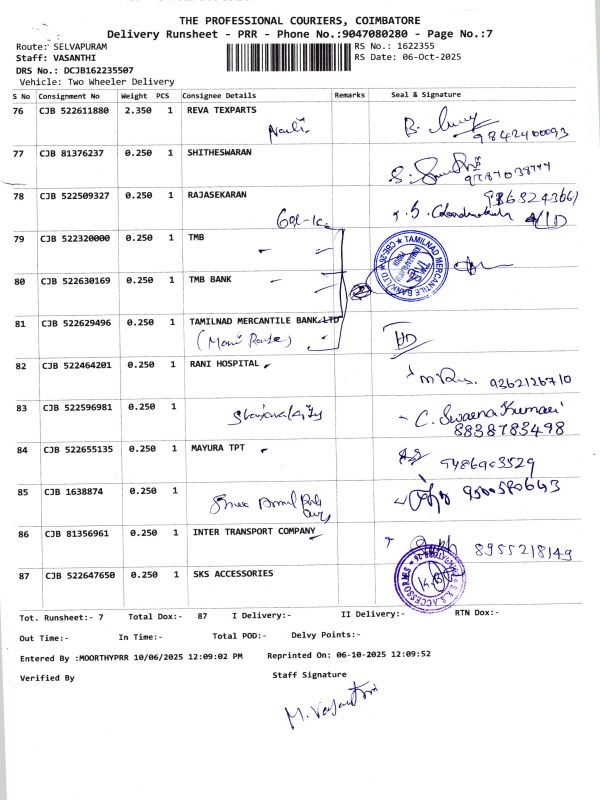 THE PROFESSIONAL COURIERS, COIMBATORE
Delivery Runsheet - PRR - Phone No.:9047080280 - Page No.:7
Route: SELVAPURAM RS No.: 1622355
Staff: VASANTHI RS Date: 06-Oct-2025
DRS No.: DCJB162235507
Vehicle: Two Wheeler Delivery
S No Consignment No Weight PCS Consignee Details Remarks Seal & Signature
76 CJB 522611880 2.350 1 REVA TEXPARTS
9842400093
77 CJB 81376237 0.250 1 SHITHESWARAN
78 CJB 522509327 0.250 1 RAJASEKARAN
79 CJB 522320000 0.250 1 TMB
TAMILNAD MERCANTILE BANK LTD
80 CJB 522630169 0.250 1 TMB BANK
81 CJB 522629496 0.250 1 TAMILNAD MERCANTILE BANK LTD
82 CJB 522464201 0.250 1 RANI HOSPITAL
9362126710
83 CJB 522596981 0.250 1
C. Swarna Kumari
8838783498
84 CJB 522655135 0.250 1 MAYURA TPT
9486903529
85 CJB 1638874 0.250 1
9500580643
86 CJB 81356961 0.250 1 INTER TRANSPORT COMPANY
8955218149
87 CJB 522647650 0.250 1 SKS ACCESSORIES
S.K.S. ACCESSORIES
Tot. Runsheet:- 7 Total Dox:- 87 I Delivery:- II Delivery:- RTN Dox:-
Out Time:- In Time:- Total POD:- Delvy Points:-
Entered By :MOORTHYPRR 10/06/2025 12:09:02 PM Reprinted On: 06-10-2025 12:09:52
Verified By Staff Signature